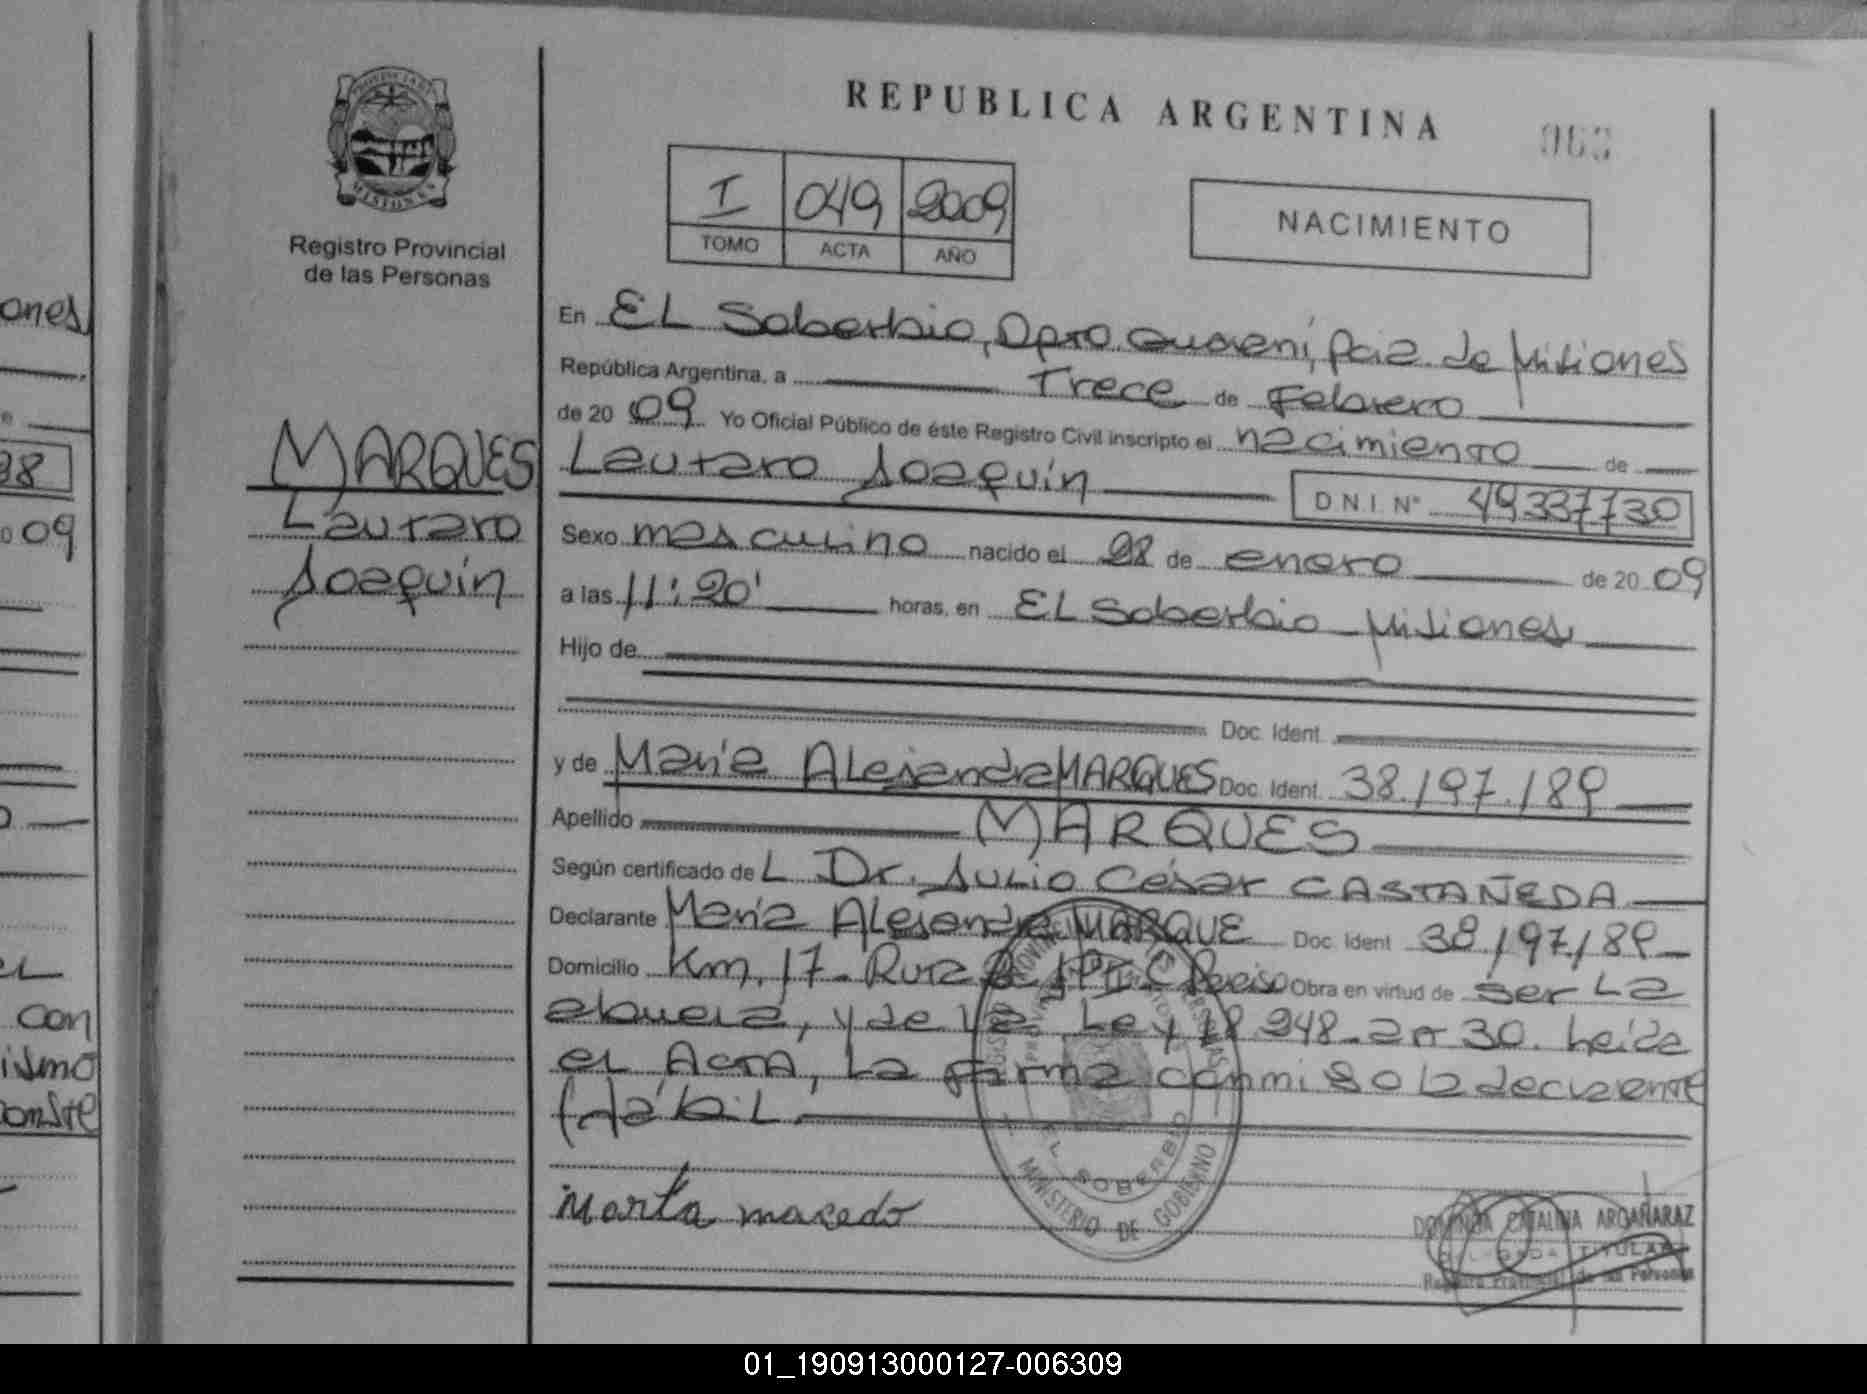 REPUBLICA ARGENTINA
I 049 2009
TOMO ACTA AÑO
NACIMIENTO
Registro Provincial
de las Personas
MARQUES
Lautaro
Joaquín
En EL Soberbio, Dpto. Guaraní, Pcia de Misiones
República Argentina, a Trece de Febrero
de 20 09 Yo Oficial Público de éste Registro Civil inscripto el nacimiento de
Lautaro Joaquín D.N.I. N° 49337730
Sexo masculino nacido el 28 de enero de 20 09
a las 11:20' horas, en EL Soberbio Misiones
Hijo de
Doc. Ident.
y de María ALejandra MARQUES Doc. Ident. 38.197.189
Apellido MARQUES
Según certificado de L Dr. JULIO César CASTAÑEDA
Declarante María ALejandra MARQUE Doc. Ident 38.197.189
Domicilio Km. 17 - Ruta Obra en virtud de ser La
abuela, y de la Ley 18.248 30. Leída
el ACTA, La firma conmigo la declarante
EL SOBERBIO
MINISTERIO DE GOBIERNO
Marta macedo
CATALINA ARGAÑARAZ
TITULAR
Registro Provincial de las Personas
ones
38
09
eL
con
ismo
onste
01_190913000127-006309